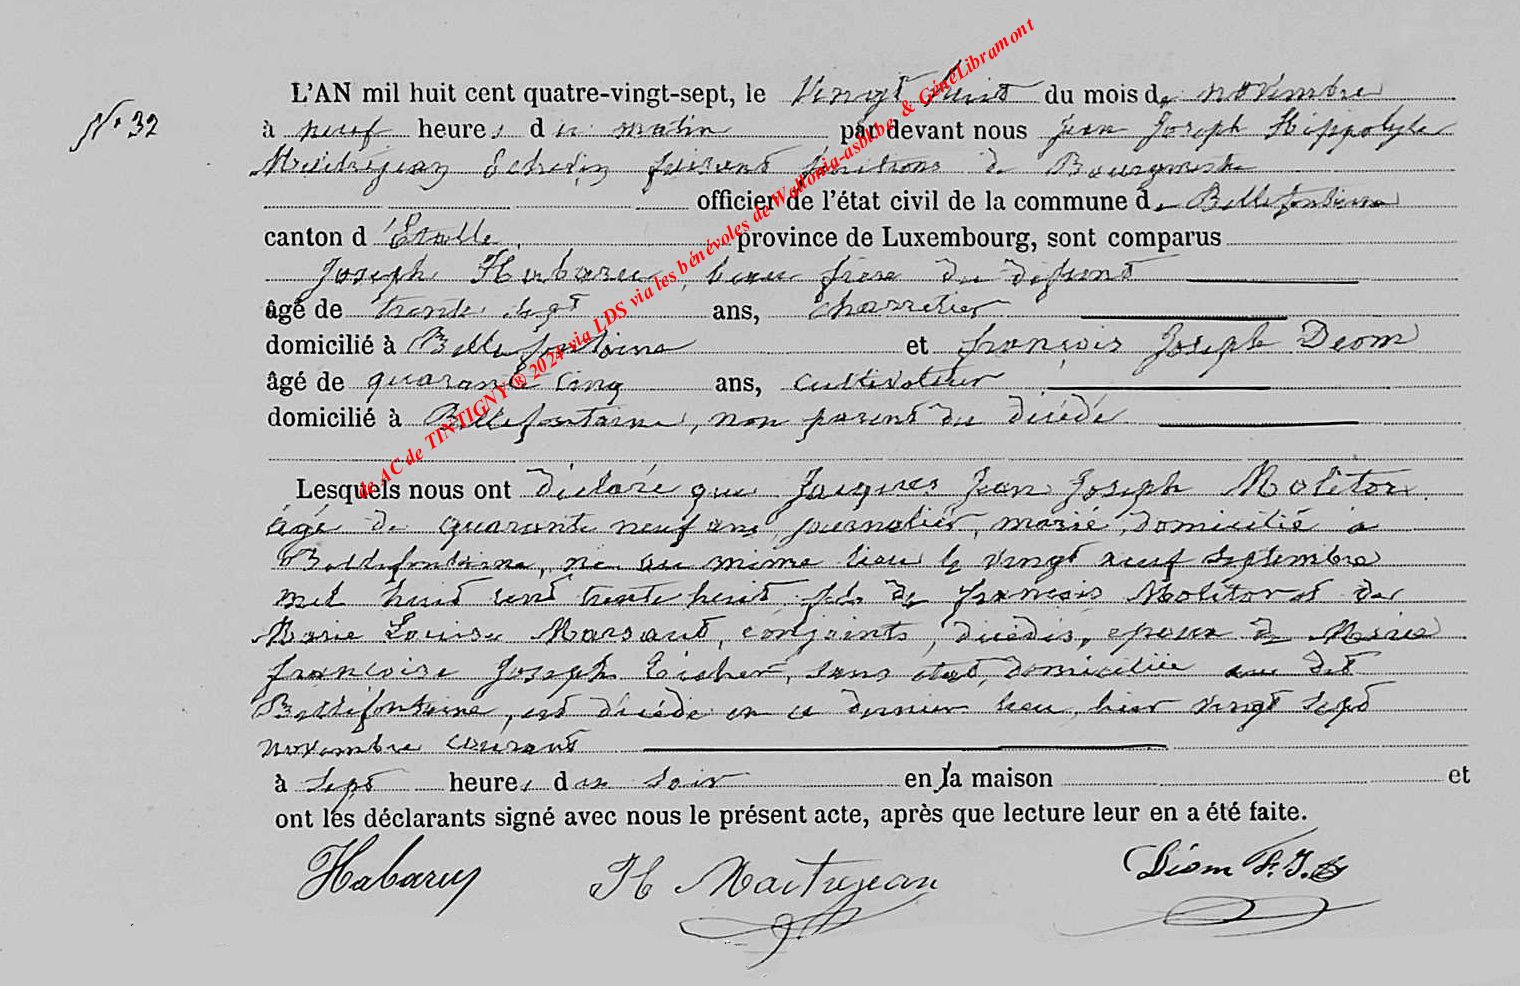 N° 32
L'AN mil huit cent quatre-vingt-sept, le vingt huit du mois de novembre
à neuf heures du matin par devant nous Jean Joseph Hippolyte
Maitrejean Echevin faisant fonctions de Bourgmestre
officier de l'état civil de la commune de Bellefontaine
canton d'Etalle, province de Luxembourg, sont comparus
Joseph Habaru, beau frère du défunt
âgé de trente sept ans, charretier
domicilié à Bellefontaine et françois Joseph Deom
âgé de quarante cinq ans, cultivateur
domicilié à Bellefontaine, non parent du décédé
Lesquels nous ont déclaré que Jacques Jean Joseph Molitor
âgé de quarante neuf ans journalier, marié, domicilié à
Bellefontaine, né au même lieu le vingt neuf septembre
mil huit cent trente huit, fils de françois Molitor et de
Marie Louise Marsaut, conjoints, décédés, époux de Marie
françoise Joseph, sans état, domiciliée au dit
Bellefontaine, est décédé en ce dernier lieu, hier vingt sept
novembre courant
à sept heures du soir en la maison et
ont les déclarants signé avec nous le présent acte, après que lecture leur en a été faite.
Habaru H Maitrejean Déom F. J.
de AC de TINTIGNY ® 2024 via LDS via les bénévoles de Wallonia-asbl.be & GénéLibramont